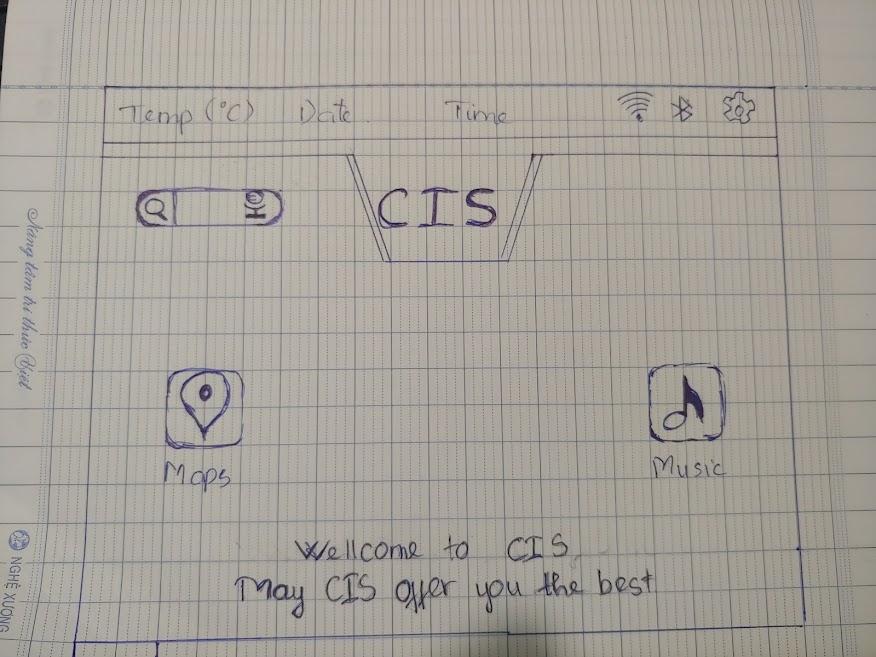 Temp (°C) Date Time
CIS
Maps
Music
Wellcome to CIS
May CIS offer you the best
Nâng tầm trí thức Việt
NGHỆ XƯƠNG